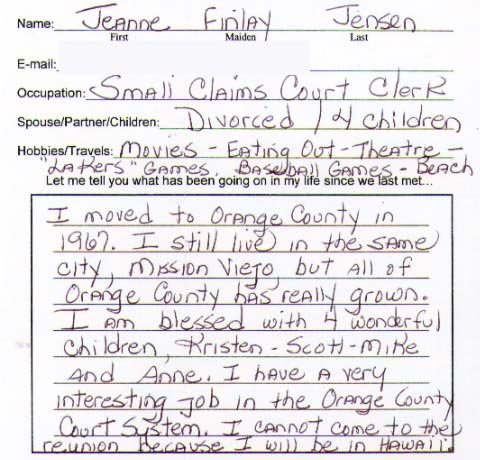 Name: Jeanne Finlay Jensen
First Maiden Last
E-mail:
Occupation: Small Claims Court Clerk
Spouse/Partner/Children: Divorced / 4 children
Hobbies/Travels: Movies - Eating Out - Theatre -
"Lakers" Games, Baseball Games - Beach
Let me tell you what has been going on in my life since we last met...
I moved to Orange County in
1967. I still live in the same
city, Mission Viejo, but all of
Orange County has really grown.
I am blessed with 4 wonderful
children, Kristen - Scott - Mike
and Anne. I have a very
interesting job in the Orange County
Court System. I cannot come to the
reunion because I will be in Hawaii.